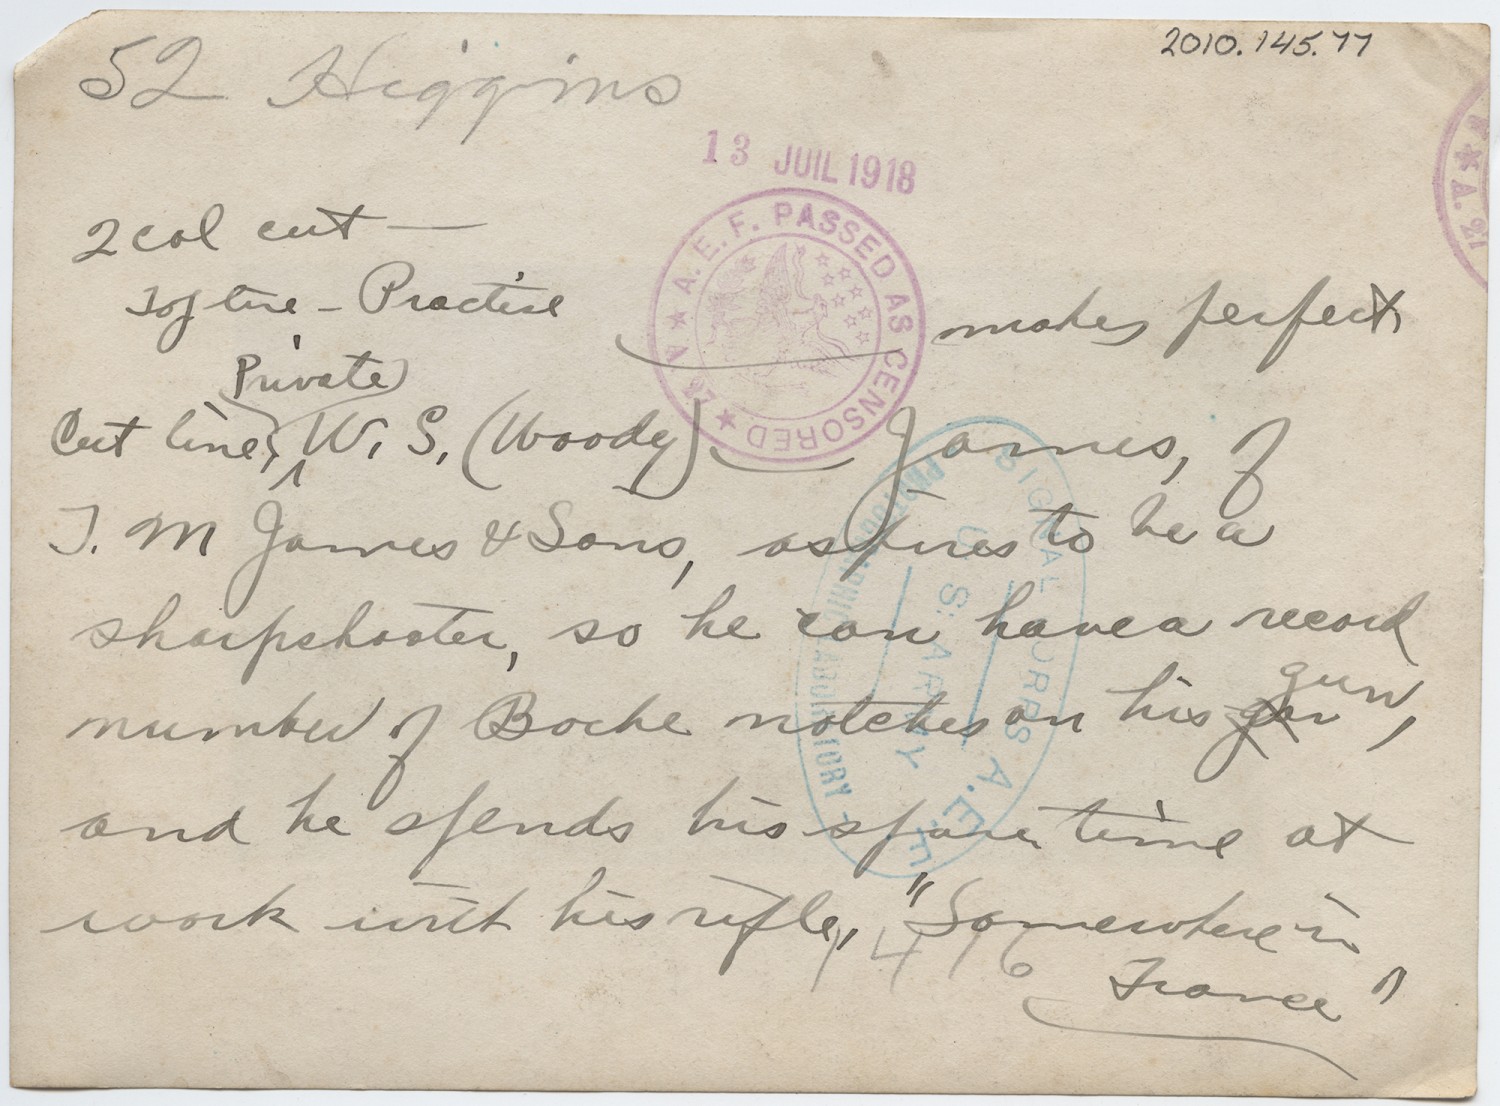 2010.145.77
52 Higgins
13 JUIL 1918
A.E.F. PASSED AS CENSORED
A. 21
2 col cut —
Top line - Practise makes perfect
Private
Cut line, W. S. (Woody) James, of
T. M James & Sons, aspires to be a
sharpshooter, so he can have a record
number of Boche notches on his gun,
and he spends his spare time at
work with his rifle, "Somewhere in
France"
1476
PHOTOGRAPHIC LABORATORY
U. S. ARMY
SIGNAL CORPS A.E.F.